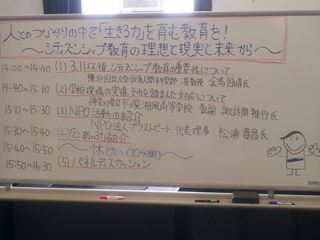 人とのつながりの中で「生きる力」を育む教育を!
～シティズンシップ教育の理想と現実と未来から～
14:00～14:40 (1) 3.11以後、シティズンシップ教育の重要性について
横浜国立大学教育人間科学部 准教授 金馬国晴氏
14:40～15:10 (2) 学校現場の実情、それを踏まえた対応について
神奈川県立平塚湘風高等学校 教諭 諏訪間雅行氏
15:10～15:30 (3) NPO活動の紹介
NPO法人プラストビート 代表理事 松浦貴昌氏
15:30～15:40 (4) 紹介
15:40～15:50 ～休けい(10分間)～
15:50～16:30 (5) パネルディスカッション